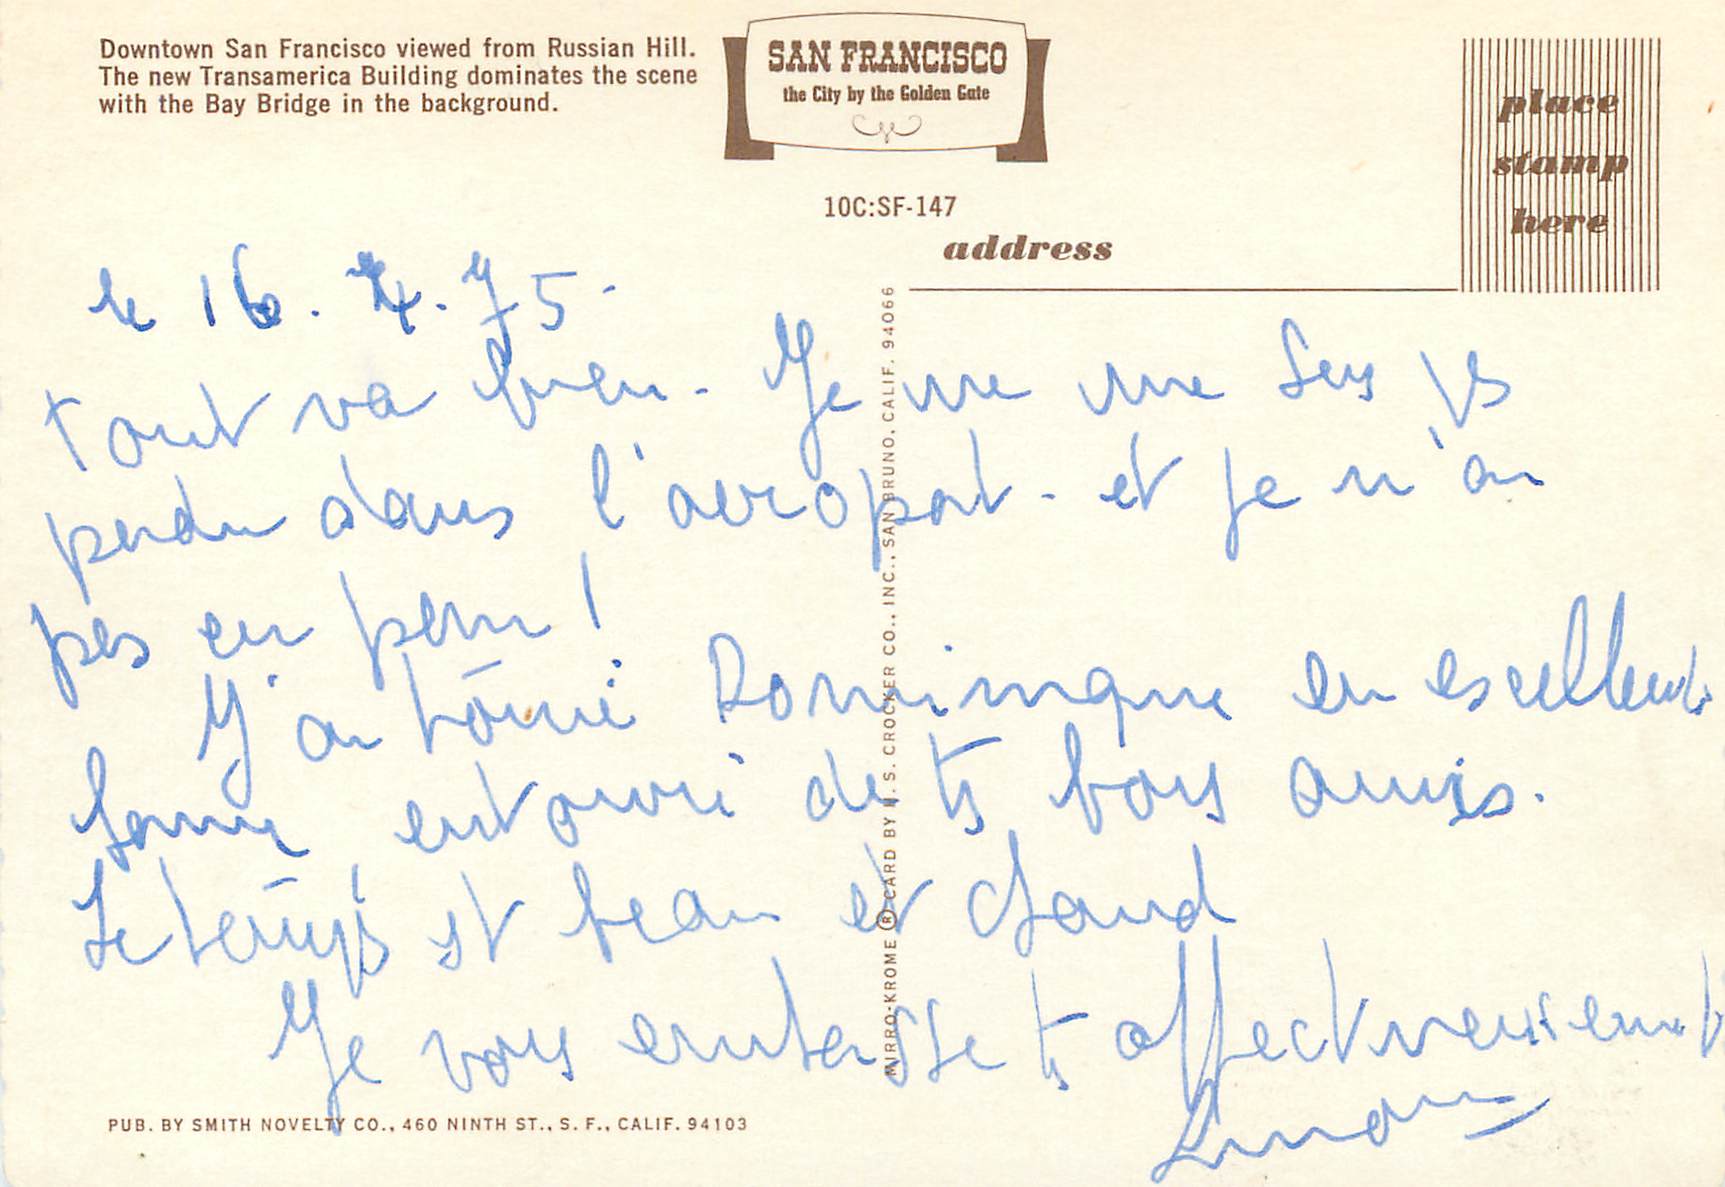 Downtown San Francisco viewed from Russian Hill.
The new Transamerica Building dominates the scene
with the Bay Bridge in the background.
SAN FRANCISCO
the City by the Golden Gate
place
stamp
here
10C:SF-147
address
le 16.4.75.
Tout va bien. Je ne me suis ps
perdu dans l'aeroport - et je n'ai
pas eu peur !
J'ai trouvé Dominique en excellente
forme entouré de ts bons amis.
Le temps est beau et chaud
Je vous embrasse ts affectueusement
MIRRO-KROME ® CARD BY H. S. CROCKER CO., INC., SAN BRUNO, CALIF. 94066
PUB. BY SMITH NOVELTY CO., 460 NINTH ST., S. F., CALIF. 94103